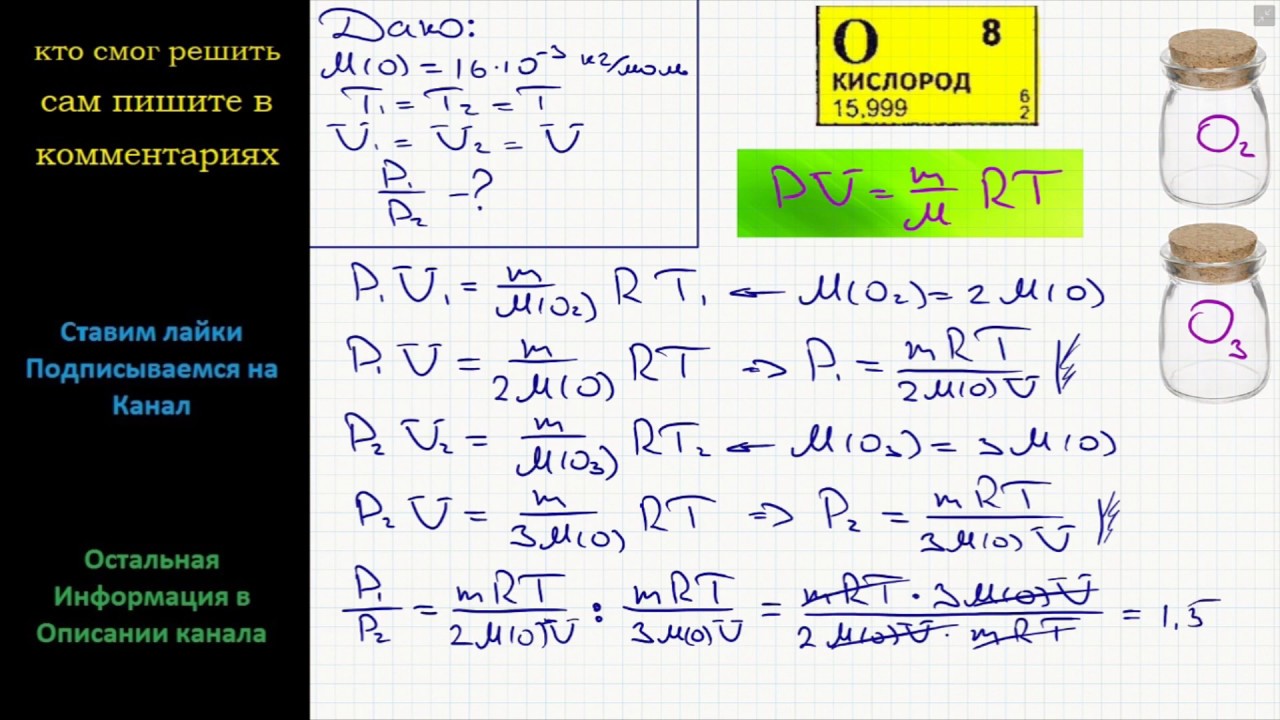 кто смог решить
сам пишите в
комментариях
Ставим лайки
Подписываемся на
Канал
Остальная
Информация в
Описании канала
Дано:
M(O) = 16·10⁻³ кг/моль
T₁ = T₂ = T
V₁ = V₂ = V
P₁/P₂ - ?
O 8
КИСЛОРОД
15,999 6 2
PV = m/M RT
O₂
O₃
P₁V₁ = m/M(O₂) RT₁ ← M(O₂) = 2M(O)
P₁V = m/2M(O) RT ⇒ P₁ = mRT/2M(O)V
P₂V₂ = m/M(O₃) RT₂ ← M(O₃) = 3M(O)
P₂V = m/3M(O) RT ⇒ P₂ = mRT/3M(O)V
P₁/P₂ = mRT/2M(O)V : mRT/3M(O)V = mRT·3M(O)V/2M(O)V·mRT = 1,5